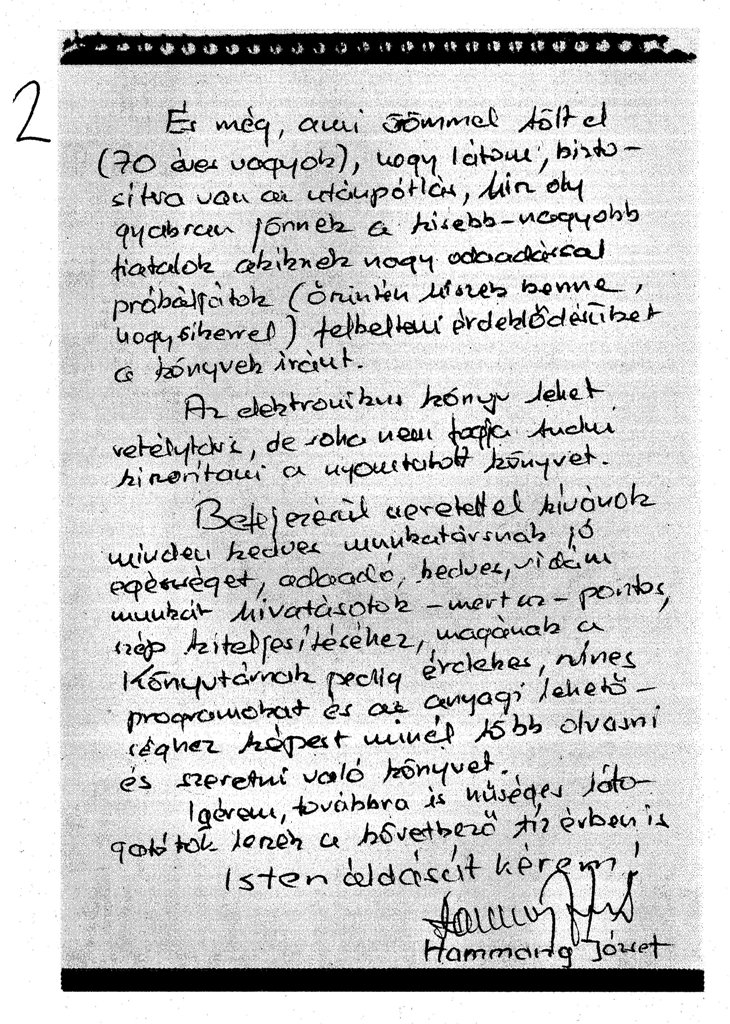 2
És még, ami örömmel tölt el
(70 éves vagyok), hogy látom, bizto-
sítva van az utánpótlás, hisz oly
gyakran jönnek a kisebb-nagyobb
fiatalok akiknek nagy odaadással
próbáljátok (őszintén hiszek benne,
hogy sikerrel) felkelteni érdeklődésüket
a könyvek iránt.
Az elektronikus könyv lehet
vetélytárs, de soha nem fogja tudni
kiszorítani a nyomtatott könyvet.
Befejezésül szeretettel kívánok
minden kedves munkatársnak jó
egészséget, odaadó, kedves, vidám
munkát hivatásotok - mert az - pontos,
szép kiteljesítéséhez, magának a
Könyvtárnak pedig érdekes, színes
programokat és az anyagi lehető-
séghez képest minél több olvasni
és szeretni való könyvet.
Igérem, továbbra is hűséges láto-
gatótok leszek a következő tíz évben is
Isten áldását kérem!
Hammang József